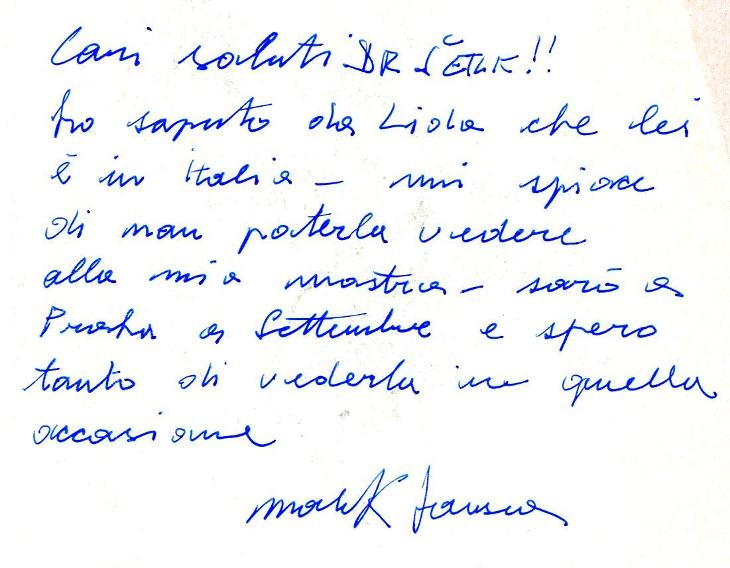 Cari saluti DR ŠETLÍK!!
ho saputo da Lida che lei
è in Italia - mi spiace
di non poterla vedere
alla mia mostra - sarò a
Praha a Settembre e spero
tanto di vederla in quella
occasione